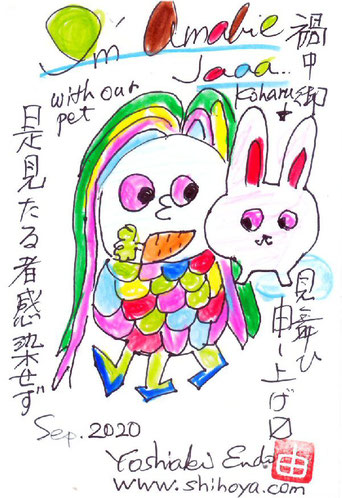 I'm Amabie
Jaaa...
with our
pet
Koharu
禍中御
見舞ひ
申し上げ〼
是見たる者感染せず
Sep. 2020
Yoshiaki Endo
由
www.shihoya.com